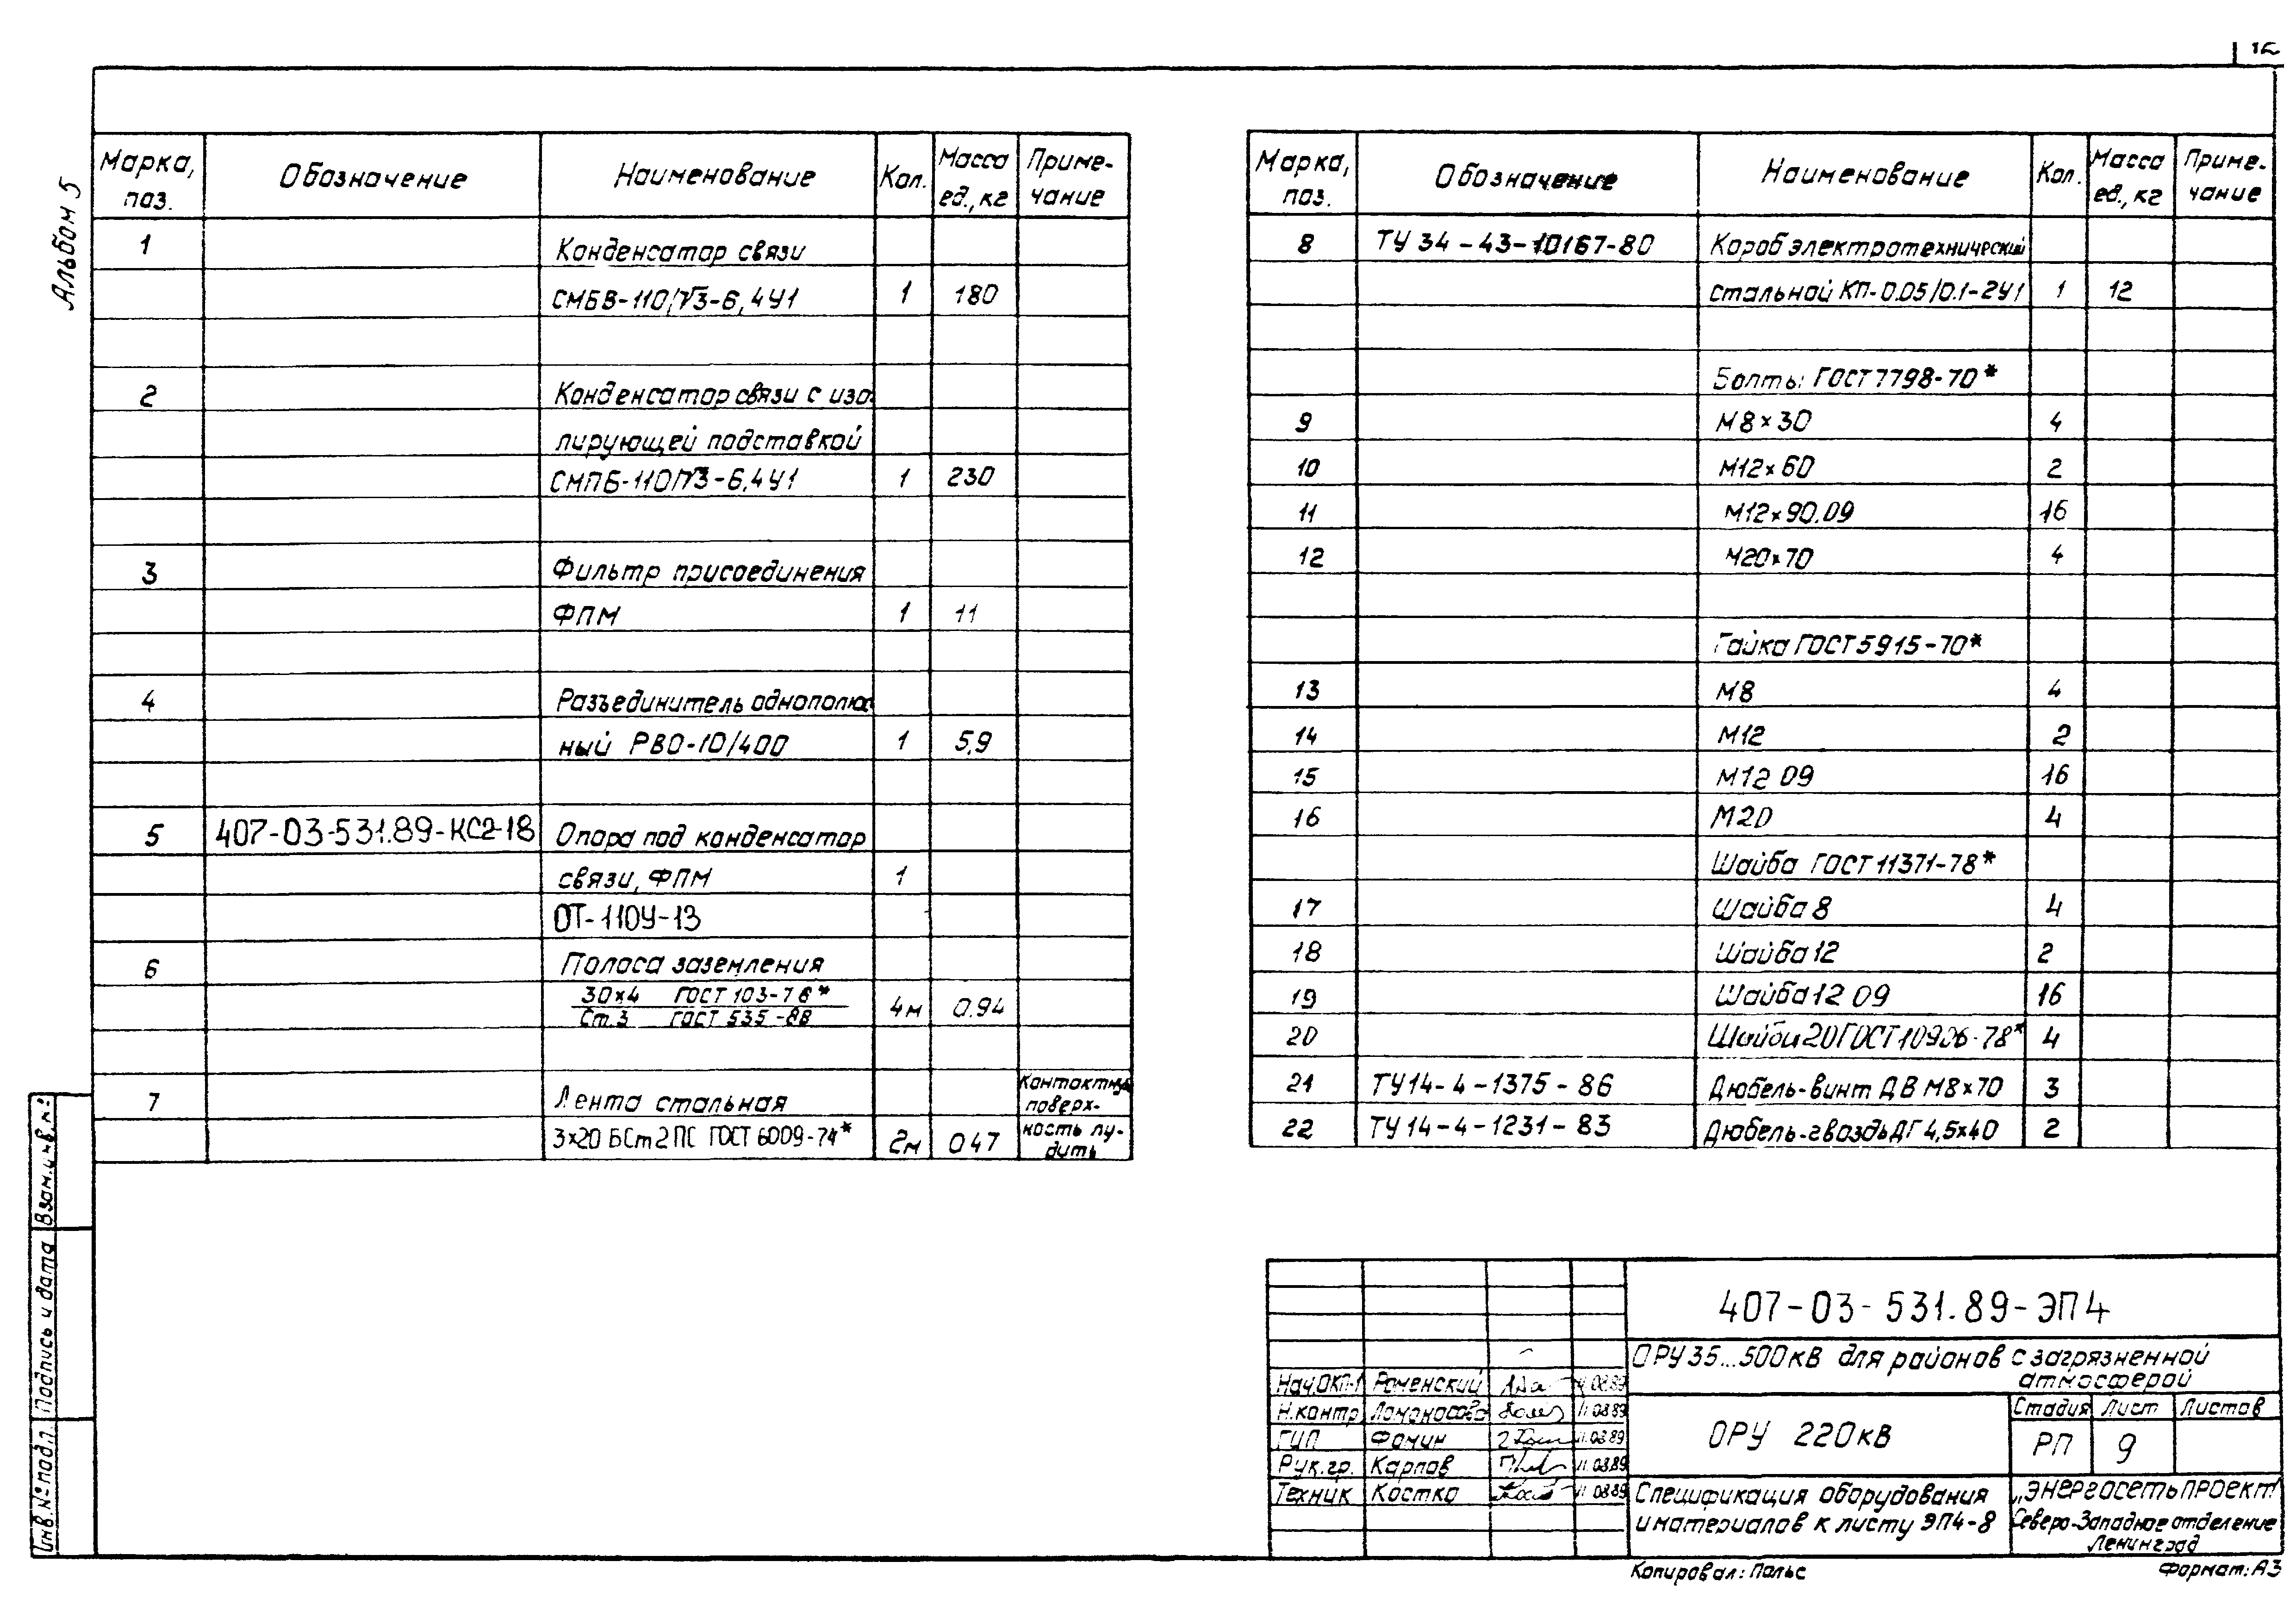 12
Альбом 5
Марка, поз. Обозначение Наименование Кол. Масса ед., кг Примечание
1 Конденсатор связи
СМБВ-110/√3-6,4У1 1 180
2 Конденсатор связи с изо-
лирующей подставкой
СМПБ-110/√3-6,4У1 1 230
3 Фильтр присоединения
ФПМ 1 11
4 Разъединитель однополюс
ный РВО-10/400 1 5,9
5 407-03-531.89-КС2-18 Опора под конденсатор
связи, ФПМ 1
ОТ-110У-13
6 Полоса заземления
30×4 ГОСТ 103-76*
Ст.3 ГОСТ 535-88 4м 0.94
7 Лента стальная
3×20 БСт2ПС ГОСТ 6009-74* 2м 0 47
Контактную
поверх-
ность лу-
дить
Марка, поз. Обозначение Наименование Кол. Масса ед., кг Примечание
8 ТУ 34-43-10167-80 Короб электротехнический
стальной КП-0.05/0.1-2У1 1 12
Болты ГОСТ 7798-70*
9 М8×30 4
10 М12×60 2
11 М12×90.09 16
12 М20×70 4
Гайка ГОСТ 5915-70*
13 М8 4
14 М12 2
15 М12 09 16
16 М20 4
Шайба ГОСТ 11371-78*
17 Шайба 8 4
18 Шайба 12 2
19 Шайба 12 09 16
20 Шайба 20 ГОСТ 10906-78* 4
21 ТУ14-4-1375-86 Дюбель-винт ДВ М8×70 3
22 ТУ14-4-1231-83 Дюбель-гвоздь ДГ 4,5×40 2
Инв.№ подл. Подпись и дата Взам.инв.№
407-03-531.89-ЭП4
ОРУ 35...500кВ для районов с загрязненной
атмосферой
Нач.ОКП-1 Роменский 11.08.89
Н.контр. Ломоносова 11.08.89
ГИП Фомин 11.08.89
Рук.гр. Карпов 11.08.89
Техник Костко 11.08.89
ОРУ 220кВ
Стадия Лист Листов
РП 9
Спецификация оборудования
и материалов к листу ЭП4-8
„ЭНЕРГОСЕТЬПРОЕКТ"
Северо-Западное отделение
Ленинград
Копировал: Польс
Формат: А3